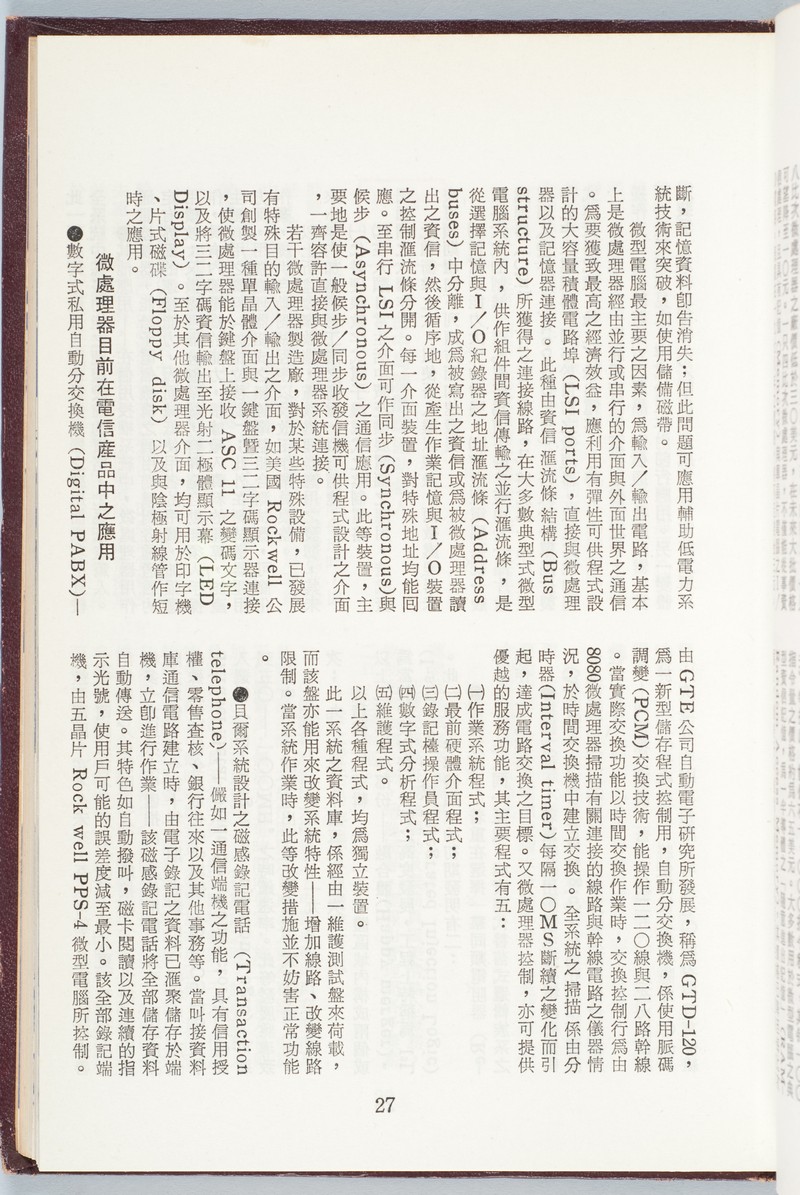 斷，記憶資料卽告消失；但此問題可應用輔助低電力系
統技術來突破，如使用儲備磁帶。
微型電腦最主要之因素，爲輸入／輸出電路，基本
上是微處理器經由並行或串行的介面與外面世界之通信
。爲要獲致最高之經濟效益，應利用有彈性可供程式設
計的大容量積體電路埠（LSI ports），直接與微處理
器以及記憶器連接。此種由資信匯流條結構（Bus
structure）所獲得之連接線路，在大多數典型式微型
電腦系統內，供作組件間資信傳輸之並行匯流條，是
從選擇記憶與I／O紀錄器之地址匯流條（Address
buses）中分離，成爲被寫出之資信或爲被微處理器讀
出之資信，然後循序地，從產生作業記憶與I／O裝置
之控制匯流條分開。每一介面裝置，對特殊地址均能回
應。至串行LSI之介面可作同步（Synchronous)與
候步（Asynchronous）之通信應用。此等裝置，主
要地是使一般候步／同步收發信機可供程式設計之介面
，一齊容許直接與微處理器系統連接。
若干微處理器製造廠，對於某些特殊設備，已發展
有特殊目的輸入／輸出之介面，如美國Rockwell公
司創製一種單晶體介面與一鍵盤暨三二字碼顯示器連接
，使微處理器能於鍵盤上接收ASC 11之變碼文字，
以及將三二字碼資信輸出至光射二極體顯示幕（LED
Display）。至於其他微處理器介面，均可用於印字機
、片式磁碟（Floppy disk）以及與陰極射線管作短
時之應用。
微處理器目前在電信產品中之應用
●數字式私用自動分交換機（Digital PABX)—
由GTE公司自動電子硏究所發展，稱爲GTD-120，
爲一新型儲存程式控制用，自動分交換機，係使用脈碼
調變（PCM）交換技術，能操作一二〇線與二八路幹線
。當實際交換功能以時間交換作業時，交換控制行爲由
8080微處理器掃描有關連接的線路與幹線電路之儀器情
況，於時間交換機中建立交換。全系統之掃描係由分
時器(Interval timer)每隔一〇MS斷續之變化而引
起，達成電路交換之目標。又微處理器控制，亦可提供
優越的服務功能，其主要程式有五：
㈠作業系統程式；
㈡最前硬體介面程式；
㈢錄記檯操作員程式；
㈣數字式分析程式；
㈤維護程式。
以上各種程式，均爲獨立裝置。
此一系統之資料庫，係經由一維護測試盤來荷載，
而該盤亦能用來改變系統特性——增加線路、改變線路
限制。當系統作業時，此等改變措施並不妨害正常功能
。
●貝爾系統設計之磁感錄記電話（Transaction
telephone)——儼如一通信端機之功能，具有信用授
權、零售查核、銀行往來以及其他事務等。當叫接資料
庫通信電路建立時，由電子錄記之資料已滙聚儲存於端
機，立卽進行作業——該磁感錄記電話將全部儲存資料
自動傳送。其特色如自動撥叫，磁卡閱讀以及連續的指
示光號，使用戶可能的誤差度減至最小。該全部錄記端
機，由五晶片Rock well PPS-4微型電腦所控制。
27